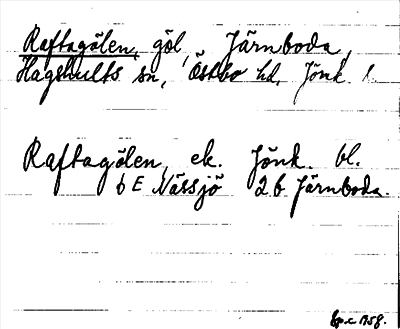 Raftagölen, göl, Järnboda,
Hagshults sn, Östbo hd. Jönk. l.
Raftagölen, ek. Jönk. bl.
6 E Nässjö 26 Järnboda.